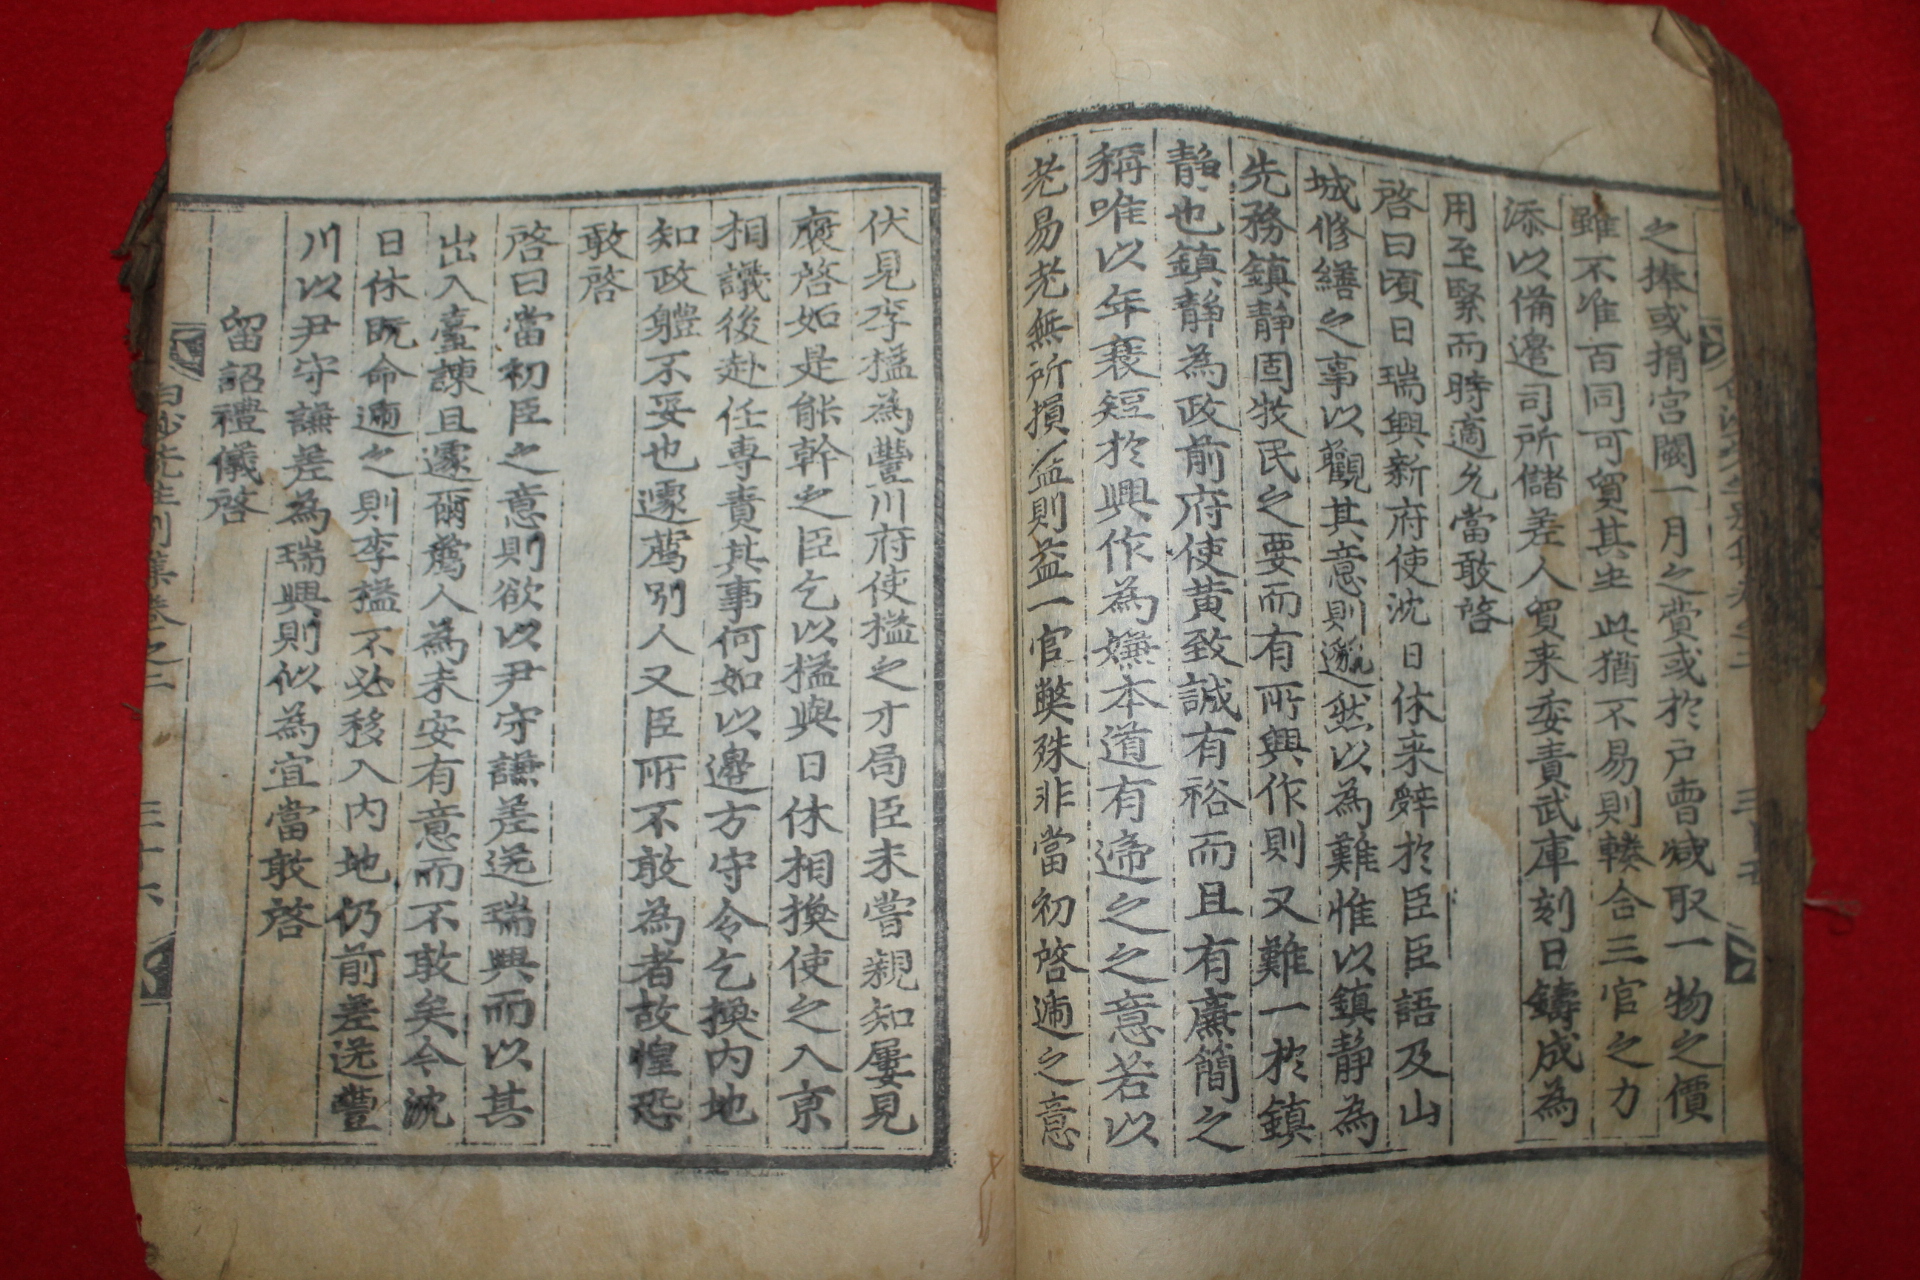 之捧或捐宮闕一月之費或於戶曹减取一物之價
雖不准百同可貿其生此猶不易則輳合三官之力
添以備邊司所儲差人貿来委責武庫刻日鑄成為
用至緊而時適允當敢啓
啓曰頃日瑞興新府使沈日休来辞於臣臣語及山
城修繕之事以觀其意則邈然以為難惟以鎮靜為
先務鎮靜固牧民之要而有所興作則又難一於鎮
靜也鎮靜為政前府使黄致誠有裕而且有廉簡之
稱唯以年衰短於興作為嫌本道有啼之之意若以
老易老無所損益則益一官獘殊非當初啓遞之意
伏見李㯭為豐川府使㯭之才局臣未甞親知屢見
廢啓如是能幹之臣乞以㯭與日休相換使之入京
相議後赴任専責其事何如以邊方守令乞換内地
知政軆不妥也遽薦別人又臣所不敢為者故惶恐
敢啓
啓曰當初臣之意則欲以尹守謙差送瑞興而以其
出入臺諫且遽爾薦人為未安有意而不敢矣今沈
日休既命遞之則李㯭不必移入内地仍前差送豐
川以尹守謙差為瑞興則似為宜當敢啓
留詔禮儀啓
白沙先生別集卷之二
三十六